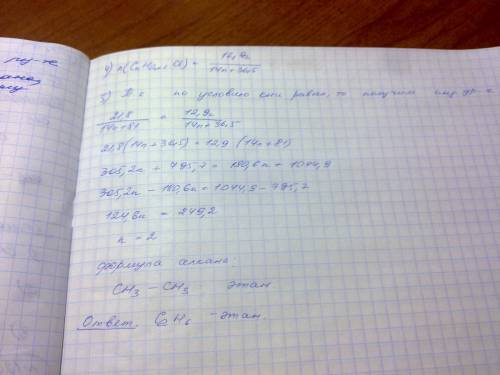 4) n(CnH2n+1Cl) = 12,9г / 14n+36,5
5) Т.к. по условию они равны, то получим след. ур-е
21,8 / 14n+81 = 12,9 / 14n+36,5
21,8(14n+36,5) = 12,9 (14n+81)
305,2n + 795,7 = 180,6n + 1044,9
305,2n - 180,6n = 1044,9 - 795,7
124,6n = 249,2
n = 2
формула алкана:
CH3 - CH3 этан
Ответ: C2H6 - этан.